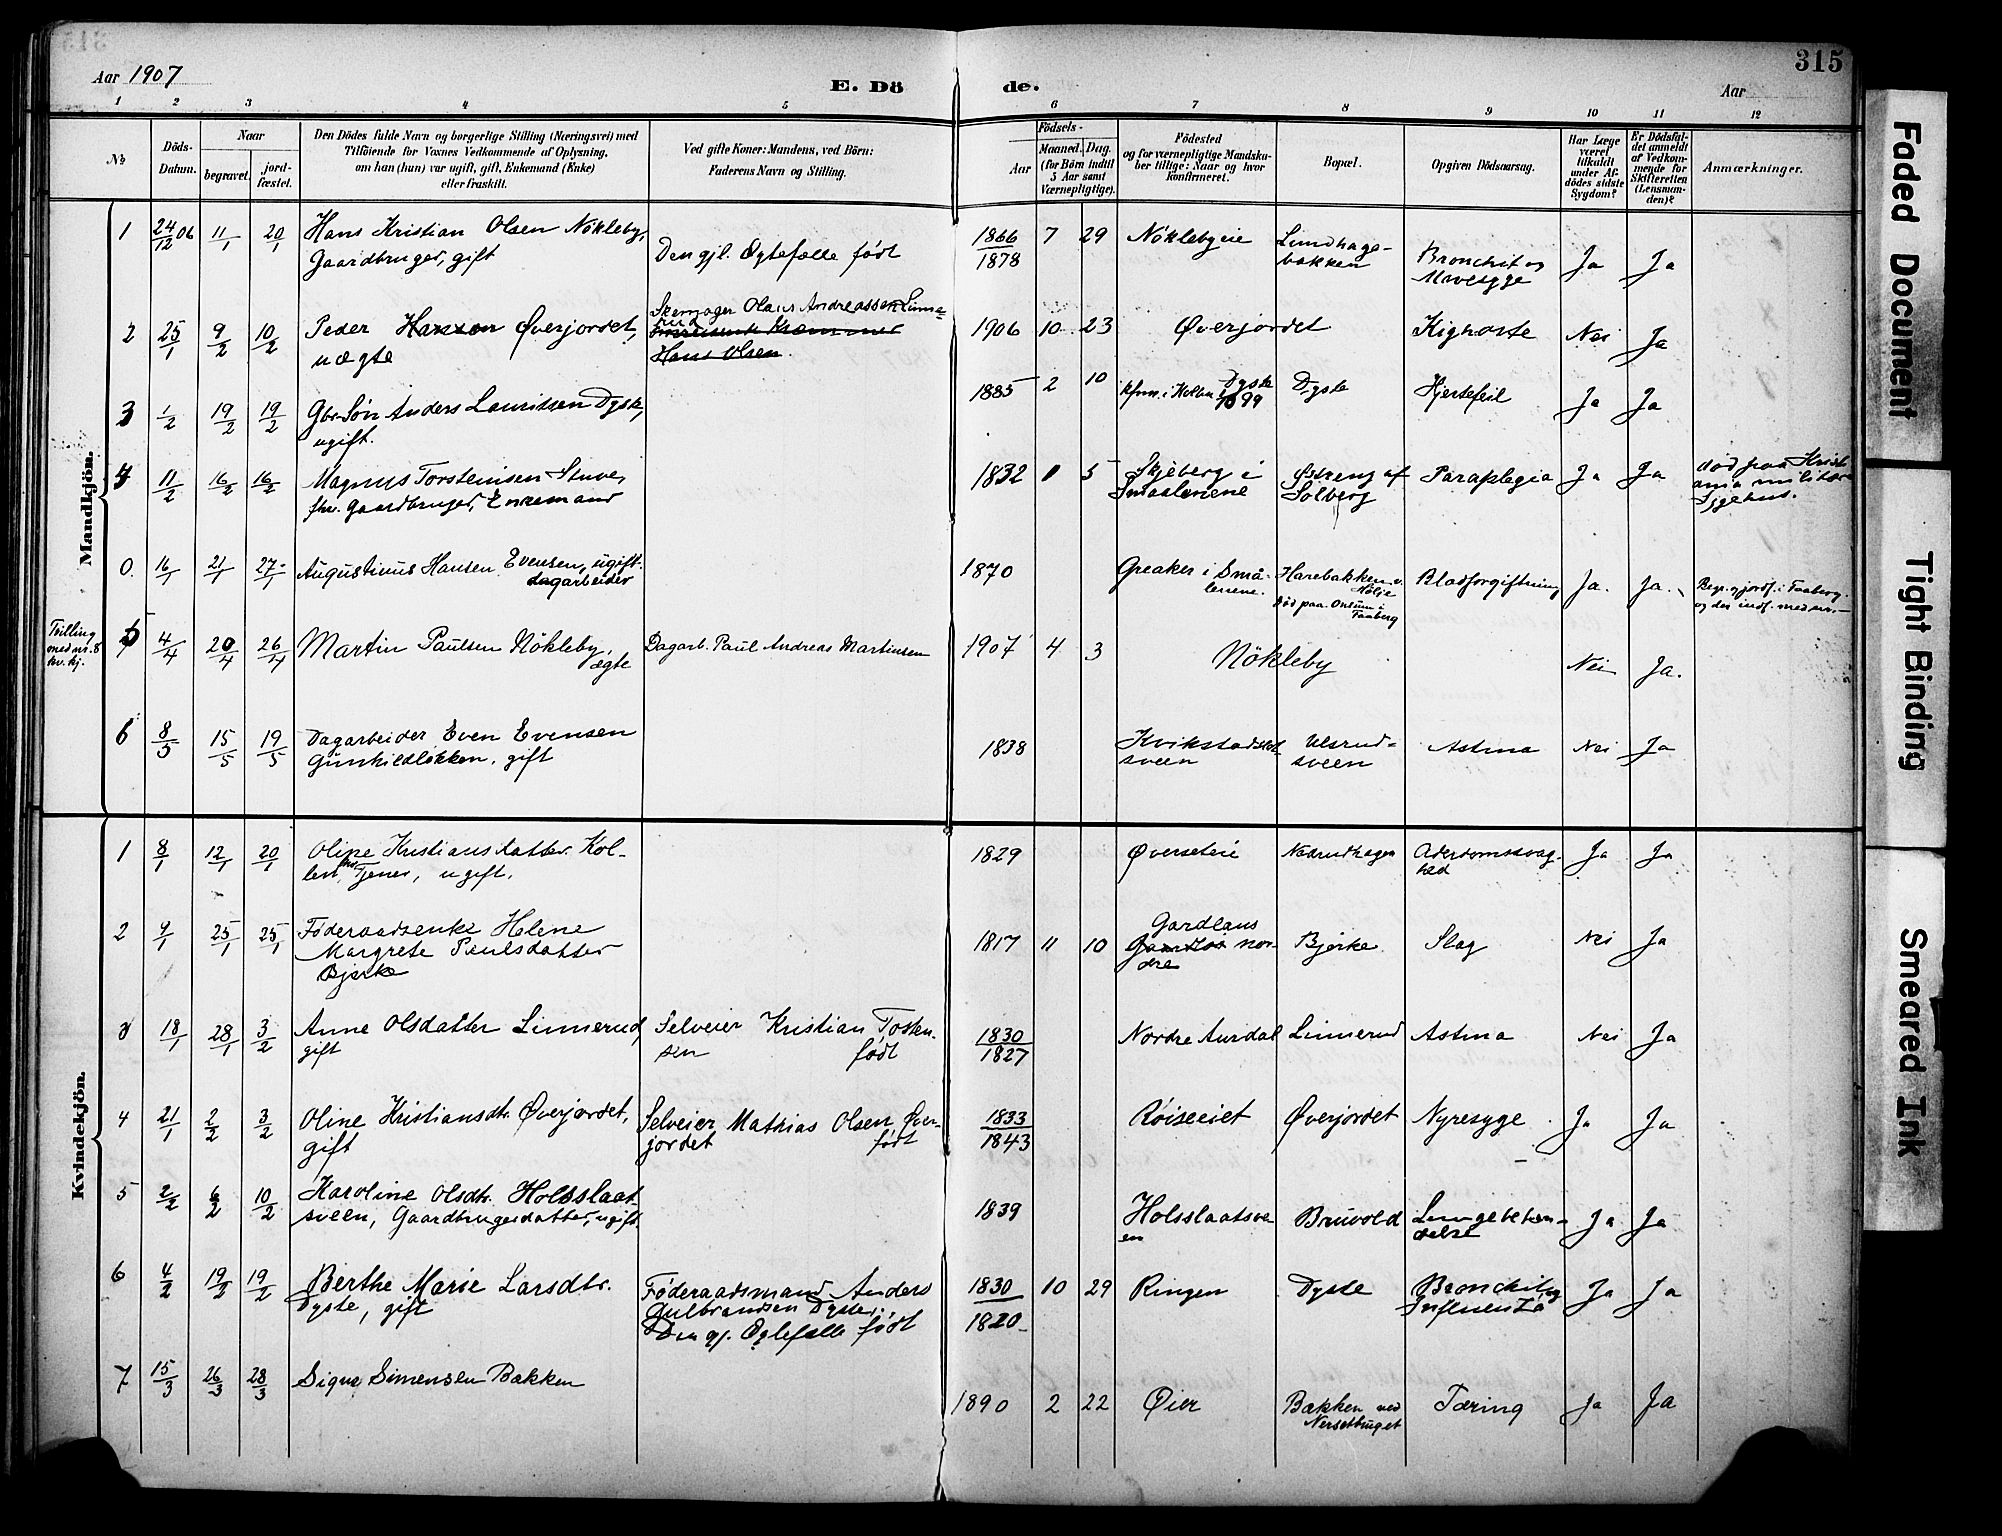 315
Aar 1907
E. Dö de.
Aar
1 2 3 4 5 6 7 8 9 10 11 12
No
Döds-
Datum.
Naar
begravet.
jord-
fæstet.
Den Dödes fulde Navn og borgerlige Stilling (Næringsvei) med
Tilföiende for Voxnes Vedkommende af Oplysning,
om han (hun) var ugift, gift, Enkemand (Enke)
eller fraskilt.
Ved gifte Koner: Mandens, ved Börn:
Faderens Navn og Stilling.
Födsels-
Aar
Maaned.
Dag.
(for Börn indtil
5 Aar samt
Værnepligtige).
Födested
og for værnepligtige Mandska-
ber tillige: Naar og hvor
konfirmeret.
Bopæl.
Opgiven Dödsaarsag.
Har Læge
været
tilkaldt
under Af-
dödes sidste
Sygdom?
Er Dödsfal-
det anmeldt
af Vedkom-
mende for
Skifteretten
(Lensman-
den)?
Anmærkninger.
Mandkjön.
1 24/12 06 11/1 20/1 Hans Kristian Olsen Nökleby,
Gaardbruger, gift
Den gjl. Ægtefælle født
1866 7 29
1878
Nöklebyeie
Lundhage-
bakken
Bronchit og
Mavesyge
Ja Ja
2 25/1 9/2 10/2 Peder Hansen Øverjordet,
uægte
Skomager Olaus Andreassen Linne-
rud
Hans Olsen.
1906 10 23 Øverjordet Kighoste Nei Ja
3 1/2 19/2 19/2 Gbr. Søn Anders Lauritsen Dyste,
ugift.
1885 2 10 Dyste
kfrm. i Kolbu 1899
Dyste Hjertefeil Ja Ja
4 11/2 16/2 16/2 Magnus Torsteinsen Stuve,
fhv. Gaardbruger, Enkemand
1832 1 5 Skjeberg i
Smaalenene
Østreng af
Solberg
Paraplegia Ja Ja
død paa Kristi-
ania militære
Sygehus.
0. 16/1 21/1 27/1 Augustinus Hansen Evensen, ugift.
dagarbeider
1870 Greaker i Små-
lenene.
Harebakken v.
Kolje
Død paa Onsum i
Faaberg
Blodforgiftning Ja. Ja.
Begr. og jordf. i Faaberg
og der indf. med nr. —
Tvilling
med nr. 8
kv. kj.
5 4/4 20/4 26/4 Martin Paulsen Nökleby,
ægte
Dagarb. Paul Andreas Martinsen
1907 4 3 Nökleby Nei Ja.
6 8/5 15/5 19/5 Dagarbeider Even Evensen
Gunhildløkken, gift
1838 Kvikstadslet-
sveen
Ulsrud-
sveen
Astma Nei Ja
Kvindekjön.
1 8/1 12/1 20/1 Oline Kristiansdatter Kol-
len, fhv. Tjener, ugift.
1829 Øverseteie Nedrudhagen Alderdomssvag-
hed
Ja Ja
2 9/1 25/1 25/1 Føderaadsenke Helene
Margrete Paulsdatter
Bjerke
1817 11 10 Gardlaus
nor-
dre
Bjerke Slag Nei Ja
3 18/1 28/1 3/2 Anne Olsdatter Linnerud,
gift
Selveier Kristian Tosten-
sen født
1830
1827
Nordre Aurdal Linnerud Astma Nei Ja
4 21/1 2/2 3/2 Oline Kristiansdtr. Øverjordet,
gift
Selveier Mathias Olsen Øver-
jordet født
1833
1843
Røiseeiet Øverjordet Nyresyge Ja Ja
5 2/2 6/2 10/2 Karoline Olsdtr. Holsslaat-
sveen, Gaardbrugerdatter, ugift
1839 Holsslaatsve-
en
Bruvold Lungebetæn-
delse
Ja Ja
6 4/2 19/2 19/2 Berthe Marie Larsdtr.
Dyste, gift
Føderaadsmand Anders
Gulbrandsen Dyste,
Den gj. Ægtefælle født
1830 10 29
1820
Ringen Dyste Bronchit og
Influenza
Ja Ja
7 15/3 26/3 28/3 Signe Simensen Bakken
1890 2 22 Øier Bakken ved
Nersetbruget
Tæring Ja Ja
Faded Document
Tight Binding
Smeared Ink